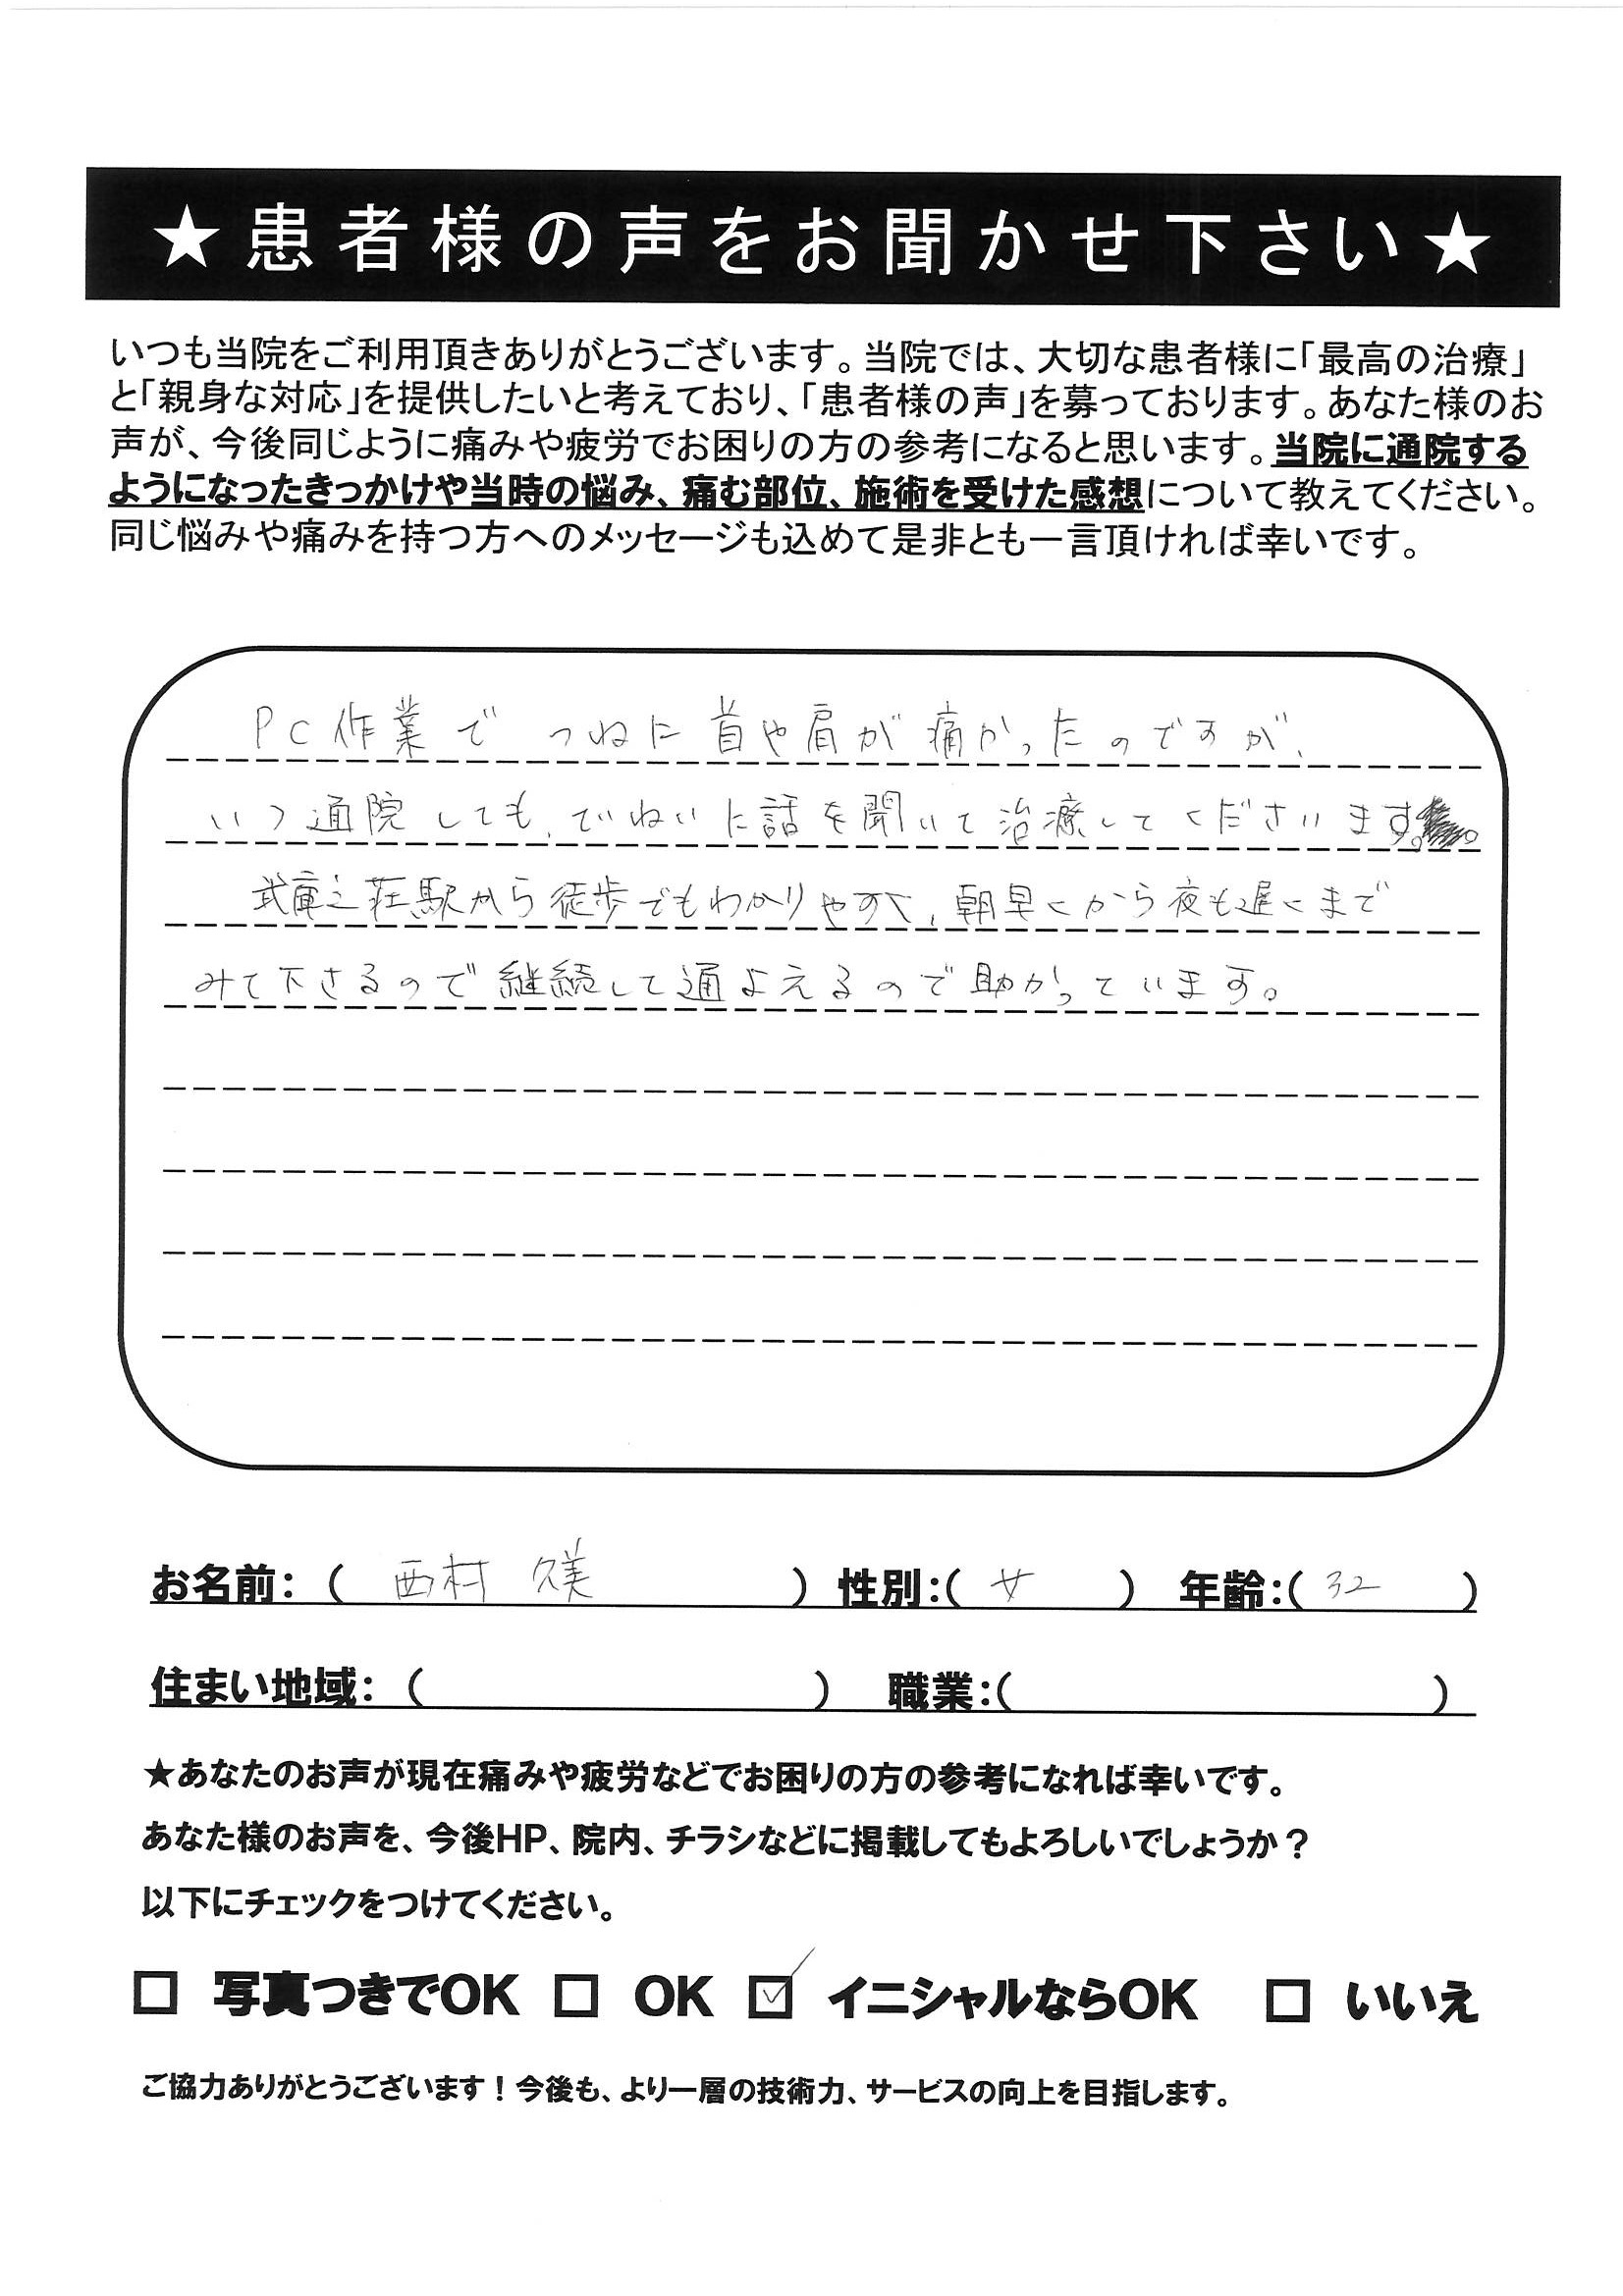 ★患者様の声をお聞かせ下さい★
いつも当院をご利用頂きありがとうございます。当院では、大切な患者様に「最高の治療」
と「親身な対応」を提供したいと考えており、「患者様の声」を募っております。あなた様のお
声が、今後同じように痛みや疲労でお困りの方の参考になると思います。当院に通院する
ようになったきっかけや当時の悩み、痛む部位、施術を受けた感想について教えてください。
同じ悩みや痛みを持つ方へのメッセージも込めて是非とも一言頂ければ幸いです。
PC作業で つねに首や肩が痛かったのですが、
いつ通院しても、ていねいに話を聞いて治療してくださいます。
武庫之荘駅から徒歩でもわかりやすく、朝早くから夜も遅くまで
みて下さるので継続して通よえるので助かっています。
お名前：（ 西村 久美 ） 性別：（ 女 ） 年齢：（ 32 ）
住まい地域：（ ） 職業：（ ）
★あなたのお声が現在痛みや疲労などでお困りの方の参考になれば幸いです。
あなた様のお声を、今後HP、院内、チラシなどに掲載してもよろしいでしょうか？
以下にチェックをつけてください。
□ 写真つきでOK □ OK ☑ イニシャルならOK □ いいえ
ご協力ありがとうございます！今後も、より一層の技術力、サービスの向上を目指します。